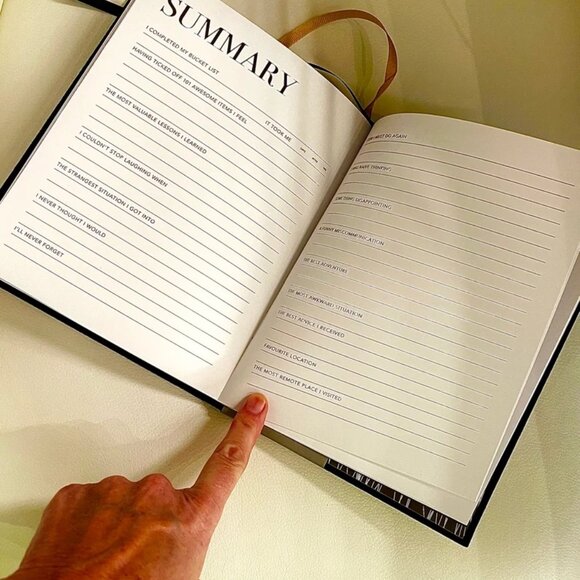 SUMMARY
I COMPLETED MY BUCKET LIST
IT TOOK ME
HAVING TICKED OFF 101 AWESOME ITEMS I FEEL
THE MOST VALUABLE LESSONS I LEARNED
I COULDN'T STOP LAUGHING WHEN
THE STRANGEST SITUATION I GOT INTO
I NEVER THOUGHT I WOULD
I'LL NEVER FORGET
MUST DO AGAIN
SOMETHING DISAPPOINTING
A FUNNY MISCOMMUNICATION
THE BEST ADVENTURE
THE MOST AWKWARD SITUATION
THE BEST ADVICE I RECEIVED
FAVOURITE LOCATION
THE MOST REMOTE PLACE I VISITED